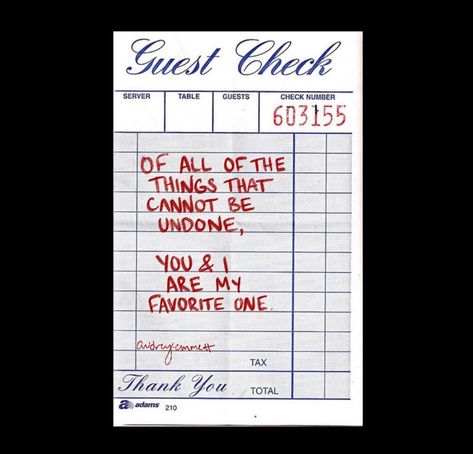 Guest Check
SERVER TABLE GUESTS CHECK NUMBER
603155
OF ALL OF THE
THINGS THAT
CANNOT BE
UNDONE,
YOU & I
ARE MY
FAVORITE ONE.
audrey emmett
TAX
Thank You TOTAL
a adams 210